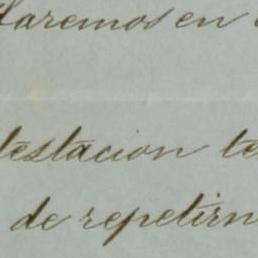 daremos en
testacion te
de repetirn